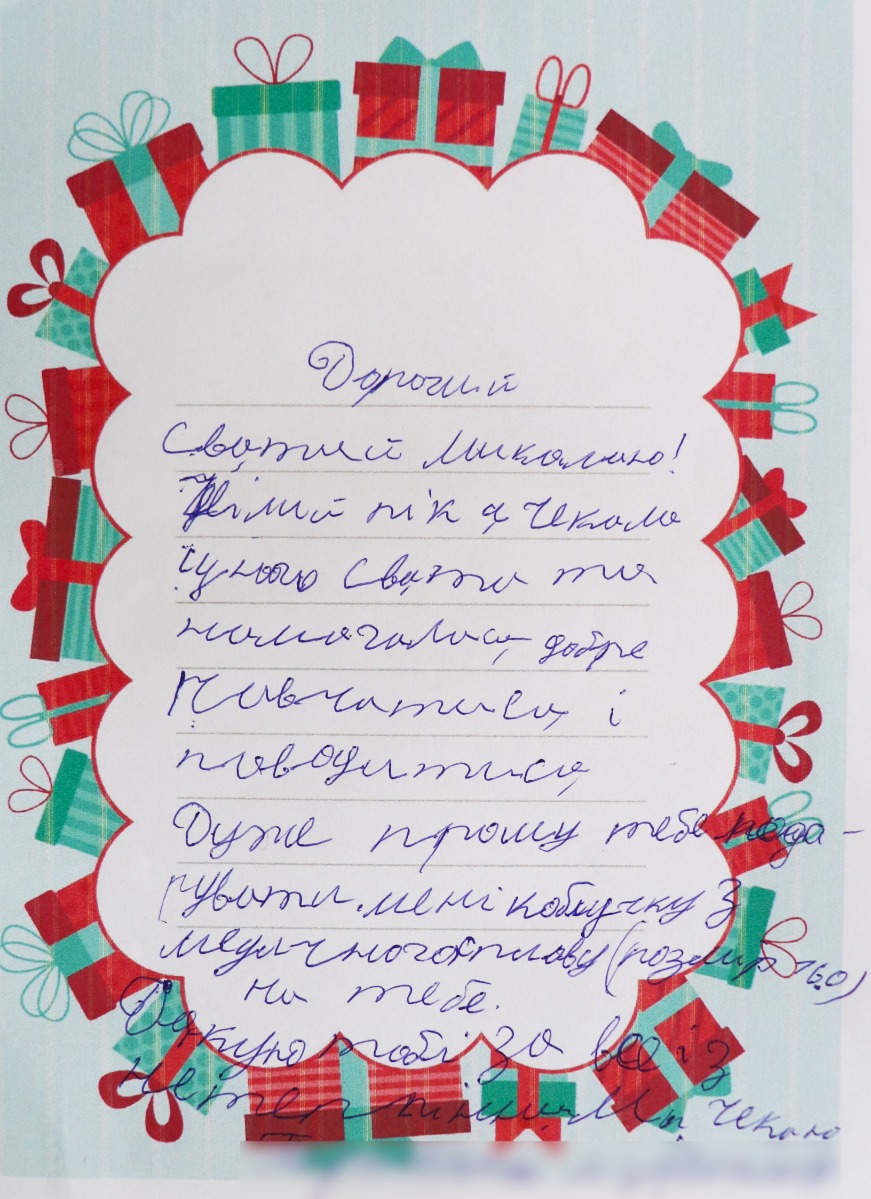 Дорогий
Святий Миколаю!
Цілий рік я чекала
цього свята та
намагалася добре
навчатися і
поводитися
Дуже прошу тебе пода-
рувати мені каблучку з
медичного сплаву (розмір 16.0)
на тебе.
Дякую тобі за все і з
нетерпінням чекаю